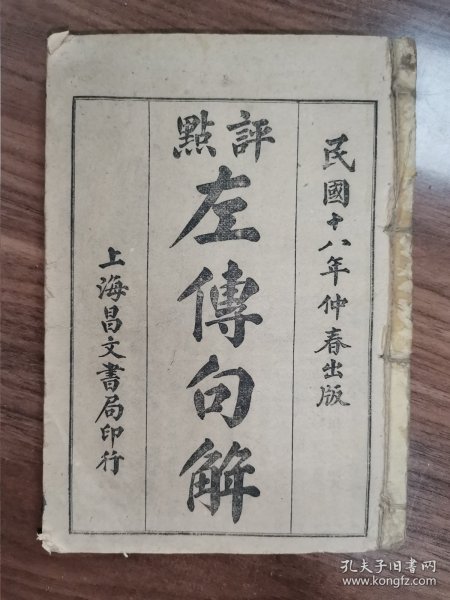 民國十八年仲春出版
評點
左傳句解
上海昌文書局印行
孔夫子旧书网
www.kongfz.com